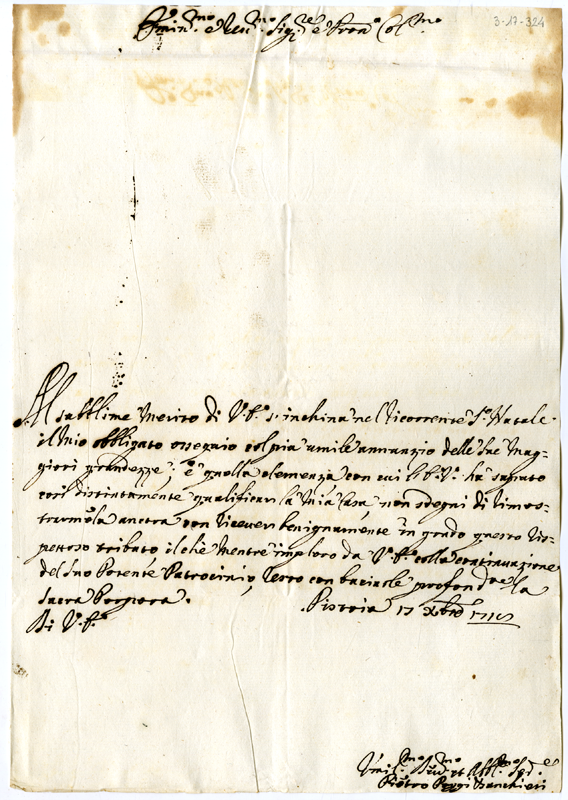 3-17-324
Emin.mo e Rev.mo Sig.re e Pron. Col.mo
Al sublime merito di V.E. s'inchina nel ricorrente S.o Natale
il mio obbligato ossequio col più umile annunzio delle sue mag-
giori grandezze; e quella clemenza con cui l'E.V. ha saputo
così distintamente qualificar la mia Casa, non sdegni di dimos-
trarmela ancora con ricever benignamente in grado questo ris-
pettoso tributo il che mentre imploro da V.E. colla continuazione
del suo Potente Patrocinio, resto con baciarle profond.te la
Sacra Porpora.
Pistoia 17 Xbre
Di V.E.
Umil.mo Dev.mo et Obbl.mo
Pietro Banchieri